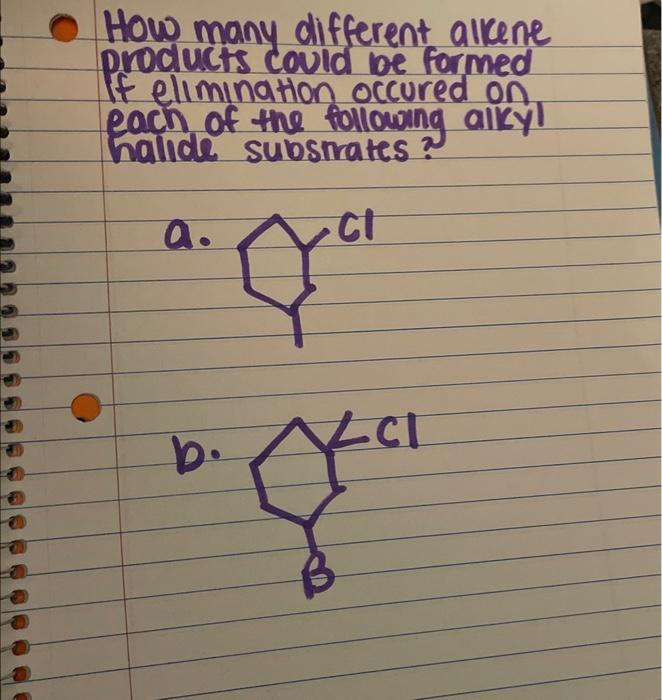 How many different alkene
products could be formed
If elimination occured on
each of the following alkyl
halide subsrrates?
a.
Cl
b.
Cl
B